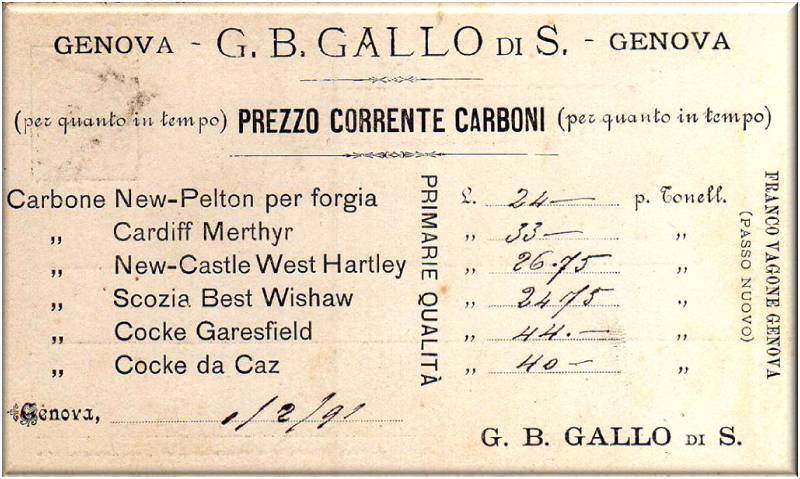 GENOVA - G. B. GALLO DI S. - GENOVA
(per quanto in tempo) PREZZO CORRENTE CARBONI (per quanto in tempo)
Carbone New-Pelton per forgia £. 24— p. Tonell.
„ Cardiff Merthyr „ 33— „
„ New-Castle West Hartley „ 26.75 „
„ Scozia Best Wishaw „ 2475 „
„ Cocke Garesfield „ 44.— „
„ Cocke da Caz „ 40— „
PRIMARIE QUALITÀ
FRANCO VAGONE GENOVA
(PASSO NUOVO)
Genova, 1/2/91
G. B. GALLO DI S.